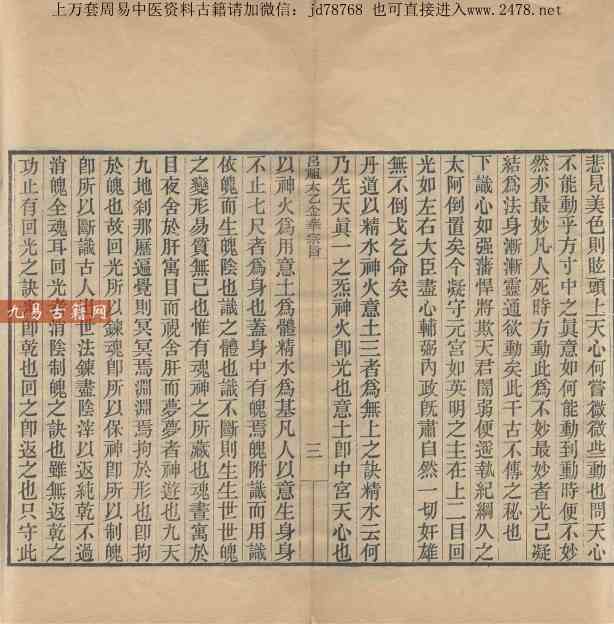 上万套周易中医资料古籍请加微信：jd78768 也可直接进入www.2478.net
悲見美色則眩頭上天心何嘗微微些動也問天心
不能動乎方寸中之眞意如何能動到動時便不妙
然亦最妙凡人死時方動此爲不妙最妙者光已凝
結爲法身漸漸靈通欲動矣此千古不傳之秘也
下識心如强藩悍將欺天君闇弱便遥執紀綱久之
太阿倒置矣今凝守元宮如英明之主在上二目回
光如左右大臣盡心輔弼內政旣肅自然一切奸雄
無不倒戈乞命矣
丹道以精水神火意土三者爲無上之訣精水云何
乃先天眞一之炁神火卽光也意土卽中宮天心也
呂祖太乙金華宗旨
三
以神火爲用意土爲體精水爲基凡人以意生身身
不止七尺者爲身也蓋身中有魄焉魄附識而用識
依魄而生魄陰也識之體也識不斷則生生世世魄
之變形易質無已也惟有魂神之所藏也魂晝寓於
目夜舍於肝寓目而視舍肝而夢夢者神遊也九天
九地刹那歷遍覺則冥冥焉淵淵焉拘於形也卽拘
於魄也故回光所以鍊魂卽所以保神卽所以制魄
卽所以斷識古人世法鍊盡陰滓以返純乾不過
消魄全魂耳回光消陰制魄之訣也雖無返乾之
功止有回光之訣卽乾也回之卽返之也只守此
九易古籍网